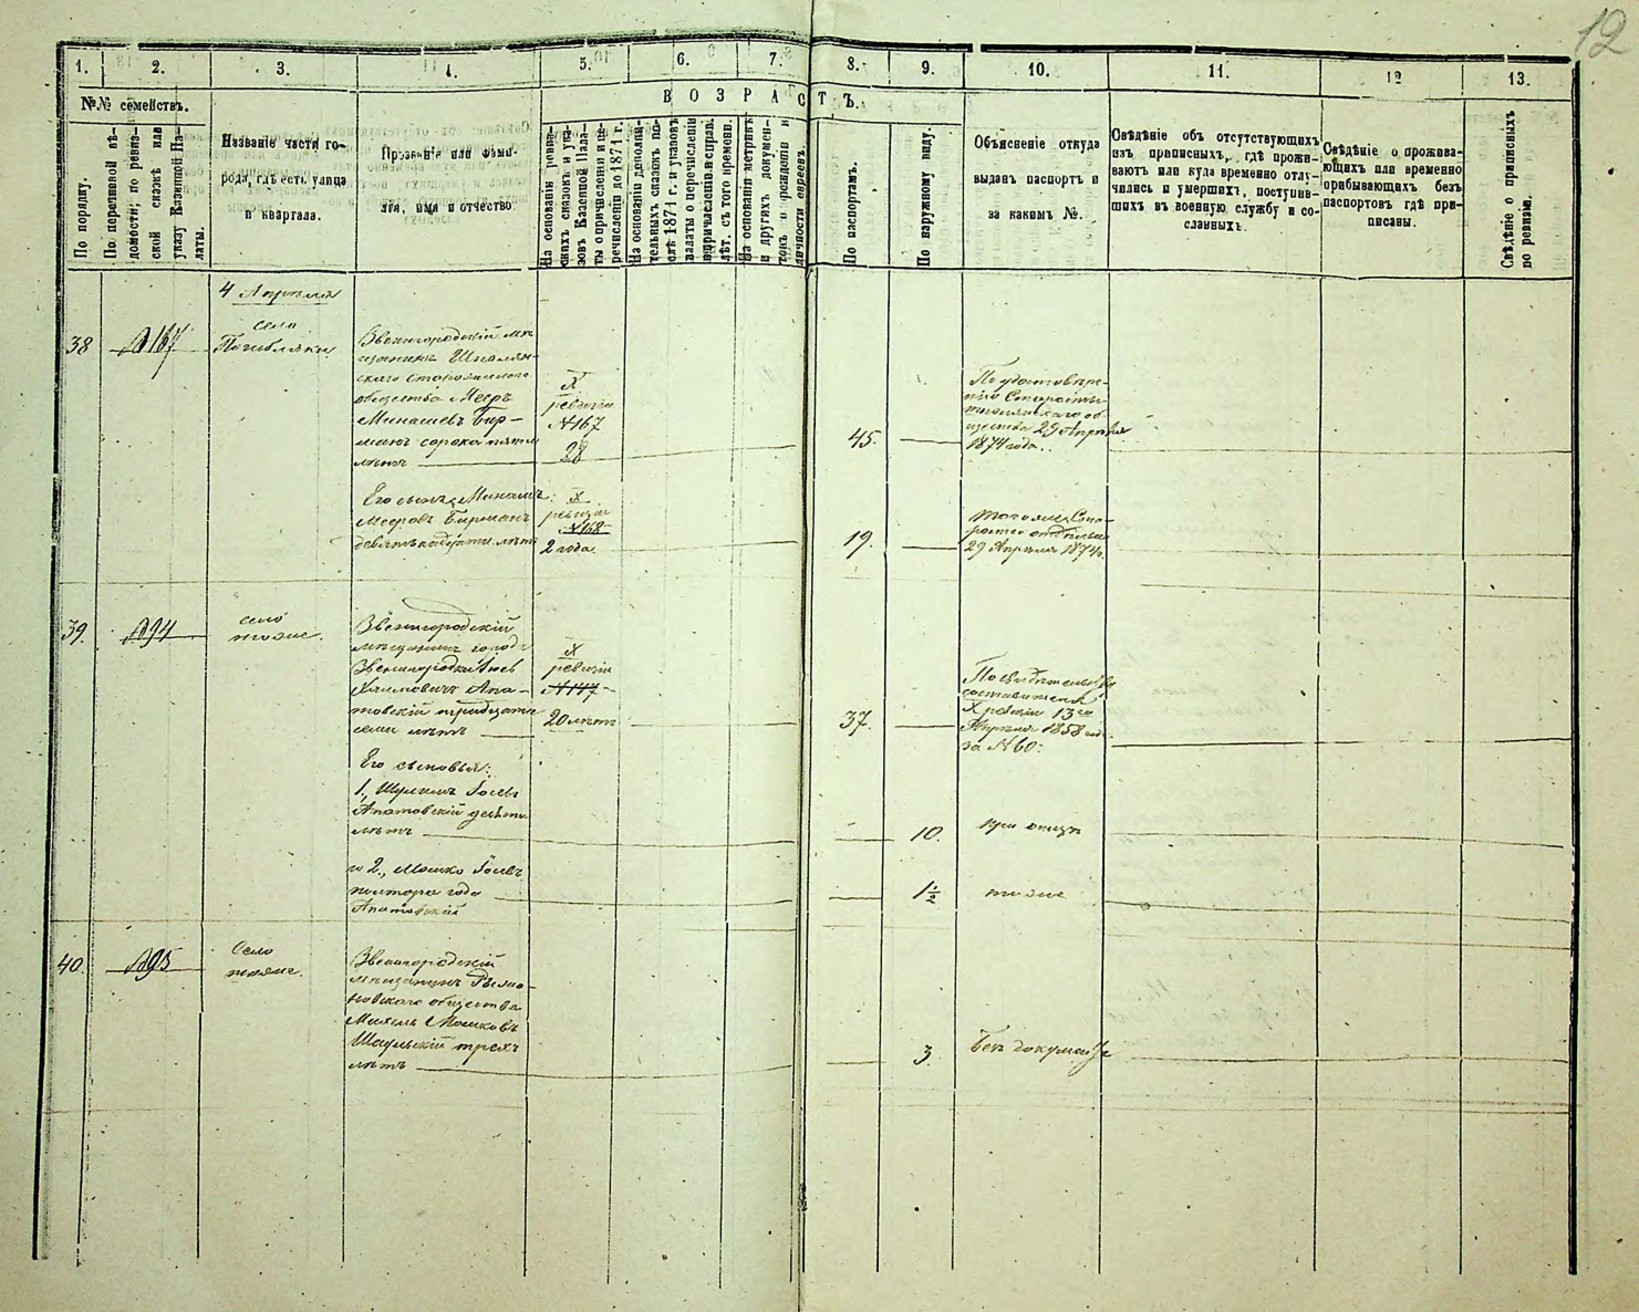 12
1. 2. 3. 4. 5. 6. 7. 8. 9. 10. 11. 12 13.
№№ семействъ.
ВОЗРАСТЪ.
По порядку.
По перечневой вѣ-
домости; по ревиз-
ской сказкѣ или
указу Казенной Па-
латы.
Названіе части го-
рода, гдѣ есть улица
и квартала.
Прозваніе или фами-
лія, имя и отчество
На основаніи ревиз-
скихъ сказокъ и ука-
зовъ Казенной Пала-
ты о причисленіи и пе-
речисленіи до 1871 г.
На основаніи дополни-
тельныхъ сказокъ по-
слѣ 1871 г. и указовъ
палаты о перечисленіи
и причисленіи и справ.
лѣт. съ того времени.
На основаніи метрикъ
и другихъ докумен-
товъ о рожденіи и
личности евреевъ.
По паспортамъ.
По наружному виду.
Объясненіе откуда
выданъ паспортъ и
за какимъ №.
Свѣдѣніе объ отсутствующихъ
изъ приписныхъ, гдѣ прожи-
ваютъ или куда временно отлу-
чились и умершихъ, поступив-
шихъ въ военную службу и со-
сланныхъ.
Свѣдѣніе о прожива-
ющихъ или временно
прибывающихъ безъ
паспортовъ гдѣ при-
писаны.
Свѣдѣніе о приписныхъ
по ревизіи.
4 Апрѣля
38 №167
село
Погибляки
Звенигородскій мѣ-
щанинъ Шполян-
скаго Старозаконнаго
общества Мееръ
Минашевъ Бир-
манъ сорока пяти
лѣтъ
X
ревизіи
№167
28
45.
По удостовѣре-
нію Старосты
Шполянскаго об-
щества 29 Апрѣля
1874 года.
Его сынъ Минашъ
Мееровъ Бирманъ
девятнадцати лѣтъ
X
ревизіи
№168
2 года
19.
того же Ста-
росты отдѣльно
29 Апрѣля 1874 г.
39. №94
село
тоже.
Звенигородскій
мѣщанинъ города
Звенигородки Іось
Хаимовичъ Апа-
товскій тридцати
семи лѣтъ
X
ревизіи
№147
20 лѣтъ
37.
По свидѣтельству
X ревизіи 13го
Апрѣля 1858 года
за №60:
Его сыновья:
1., Шулимъ Іосевъ
Апатовскій десяти
лѣтъ
10.
при отцѣ
и 2., Мошко Іосевъ
полтора года
Апатовскій
1½
тоже
40. №95
Село
тоже.
Звенигородскій
мѣщанинъ
общества
Михель Мошковъ
Шаульскій трехъ
лѣтъ
3.
Безъ документа